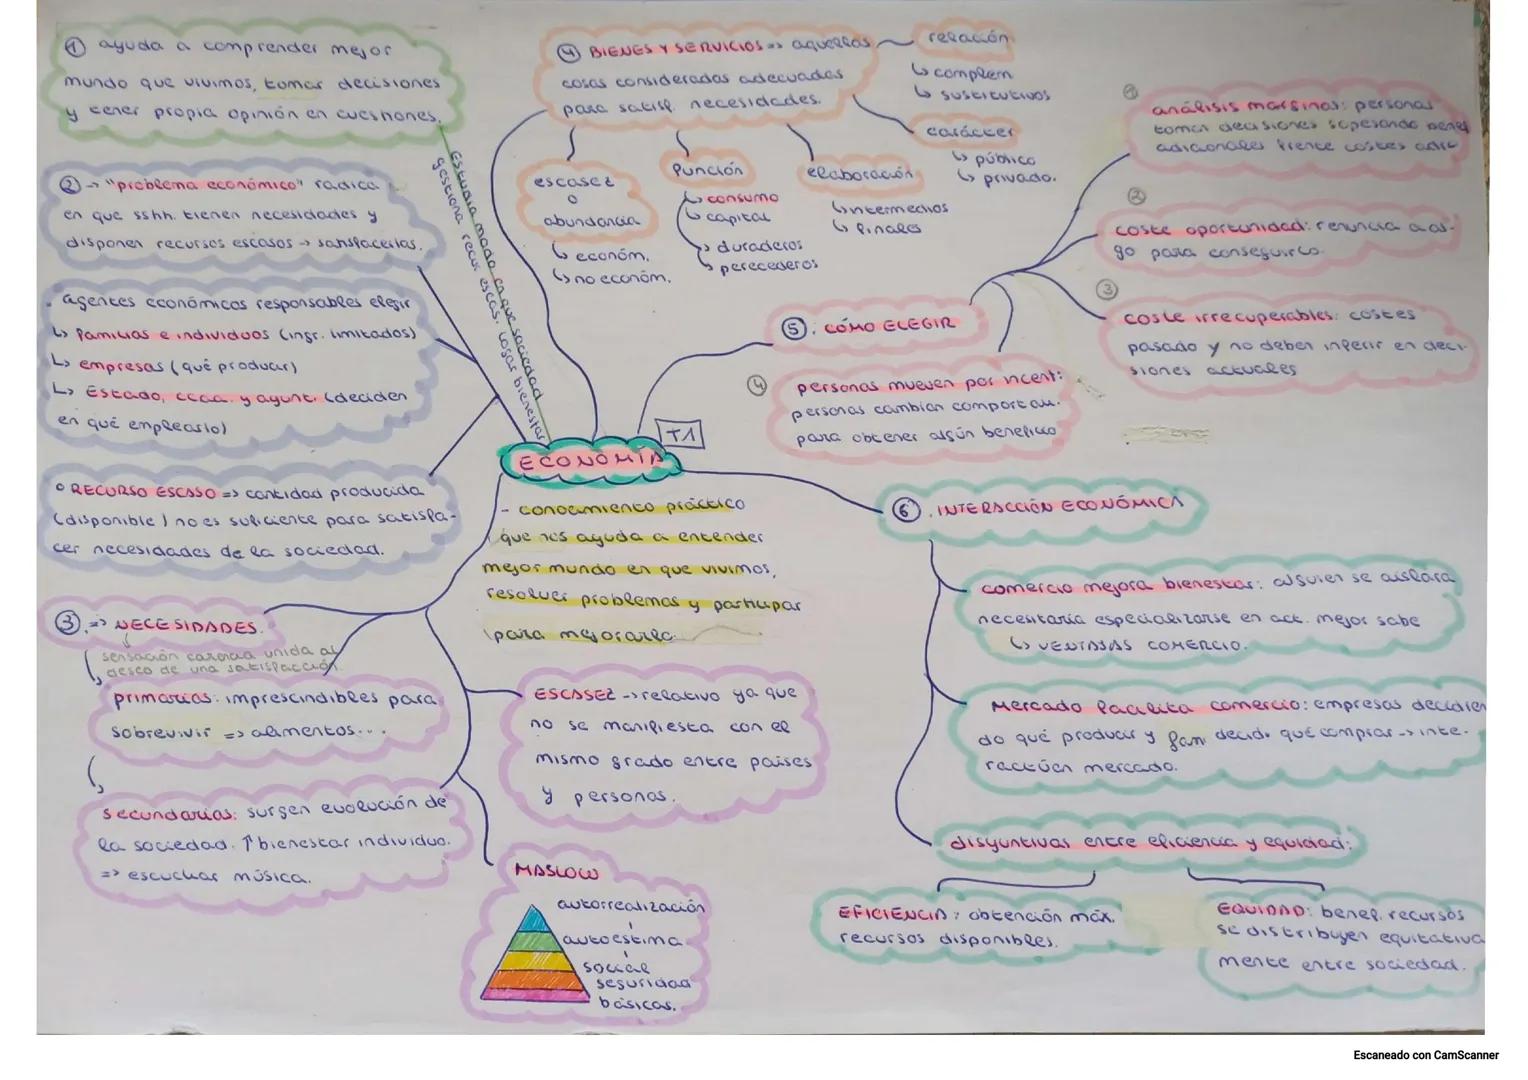 ① ayuda a comprender mejor
mundo que vivimos, tomar decisiones
y tener propia opinión en cuestiones.
Estudia modo en que sociedad
gestiona recur. escas. logar bienestar
② → "problema económico" radica
en que sshh. tienen necesidades y
disponen recursos escasos → satisfacerlas.
agentes económicos responsables elegir
↳ familias e individuos (ingr. limitados)
↳ empresas (qué producir)
↳ Estado, ccaa. y ayunt. (deciden
en qué emplearlo)
° RECURSO ESCASO => cantidad producida
(disponible) no es suficiente para satisfa-
cer necesidades de la sociedad.
③ => NECESIDADES.
sensación carencia unida al
deseo de una satisfacción.
primarias: imprescindibles para
sobrevivir => alimentos...
secundarias: surgen evolución de
la sociedad. ↑ bienestar individuo.
=> escuchar música.
④ BIENES Y SERVICIOS => aquellas
cosas consideradas adecuadas
para satisf. necesidades.
escasez
o
abundancia
↳ económ.
↳ no económ.
función
↳ consumo
↳ capital
↳ duraderos
↳ perecederos
elaboración
↳ intermedios
↳ finales
relación
↳ complem
↳ sustitutivos
carácter
↳ público
↳ privado.
⑤. CÓMO ELEGIR
①
análisis marginal: personas
toman decisiones sopesando benef
adicionales frente costes adic
②
coste oportunidad: renuncia a al-
go para conseguirlo.
③
coste irrecuperables: costes
pasado y no deben inferir en deci-
siones actuales
④
personas mueven por incent:
personas cambian comportam.
para obtener algún beneficio
T1
ECONOMÍA
- conocimiento práctico
que nos ayuda a entender
mejor mundo en que vivimos,
resolver problemas y participar
para mejorarlo.
ESCASEZ → relativo ya que
no se manifiesta con el
mismo grado entre países
y personas.
MASLOW
autorrealización
autoestima
social
seguridad
básicas.
⑥. INTERACCIÓN ECONÓMICA
comercio mejora bienestar: alguien se aislara
necesitaría especializarse en act. mejor sabe
↳ VENTAJAS COMERCIO.
Mercado facilita comercio: empresas decidien
do qué producir y fam decid. qué comprar → inte-
ractúen mercado.
disyuntivas entre eficiencia y equidad:
EFICIENCIA: obtención máx.
recursos disponibles.
EQUIDAD: benef. recursos
se distribuyen equitativa
mente entre sociedad.
Escaneado con CamScanner